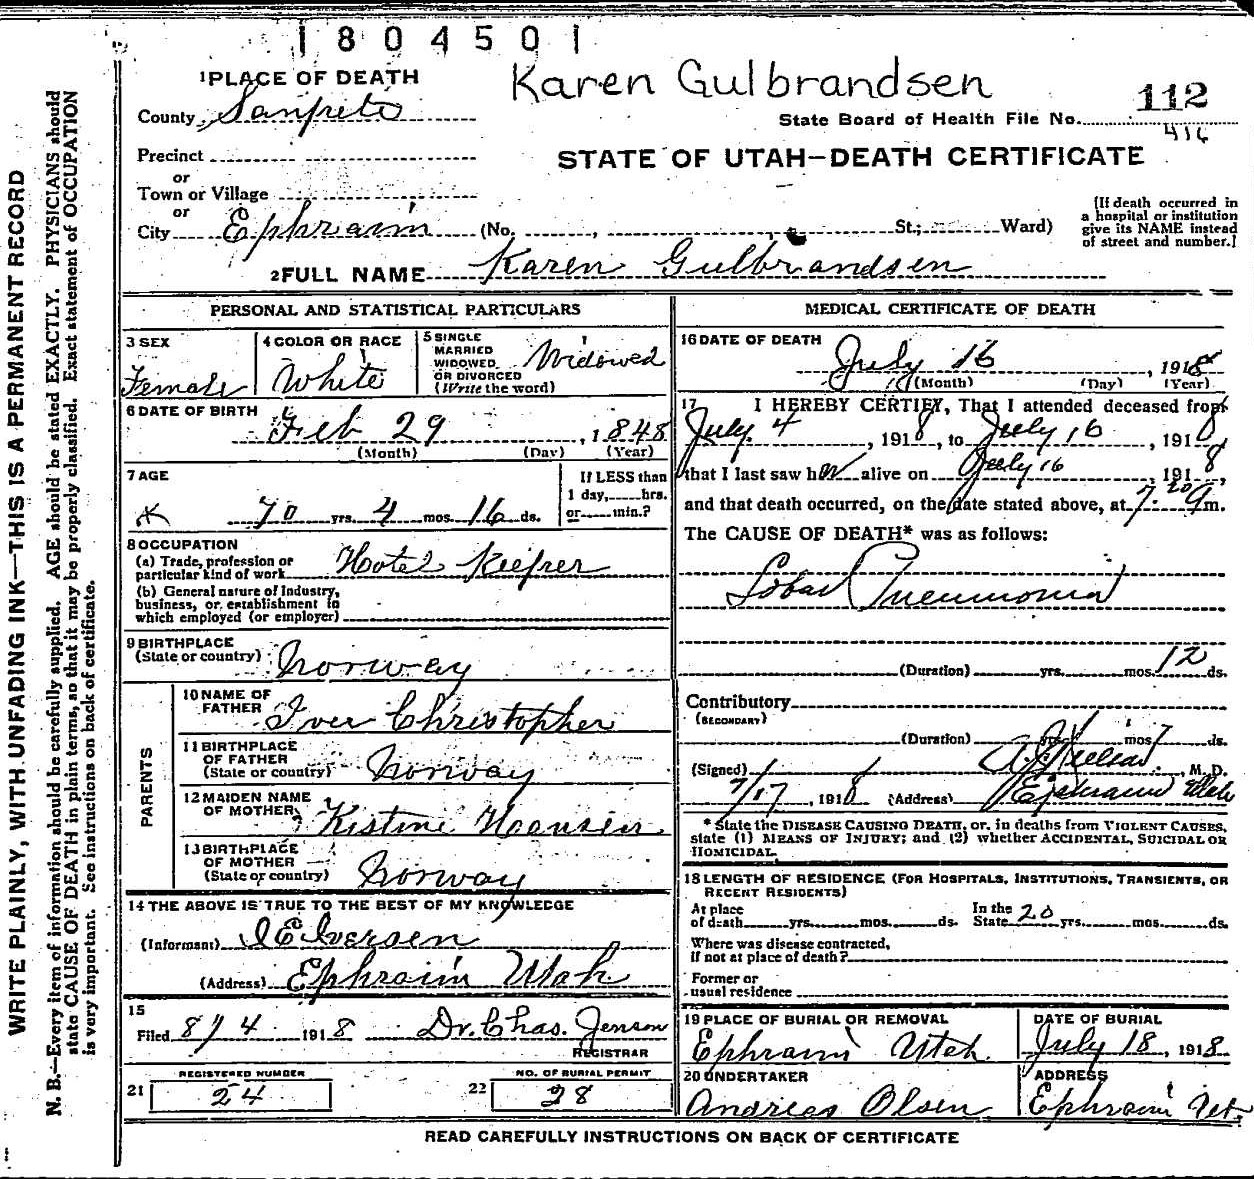 1804501
Karen Gulbrandsen
112
416
State Board of Health File No.
STATE OF UTAH—DEATH CERTIFICATE
1 PLACE OF DEATH
County Sanpete
Precinct
or
Town or Village
or
City Ephraim (No. , St.; Ward)
[If death occurred in
a hospital or institution
give its NAME instead
of street and number.]
2 FULL NAME Karen Gulbrandsen
PERSONAL AND STATISTICAL PARTICULARS
3 SEX
Female
4 COLOR OR RACE
White
5 SINGLE
MARRIED
WIDOWED
OR DIVORCED
(Write the word)
Widowed
6 DATE OF BIRTH
Feb 29, 1848
(Month) (Day) (Year)
7 AGE
70 yrs. 4 mos. 16 ds.
If LESS than
1 day, hrs.
or min.?
8 OCCUPATION
(a) Trade, profession or
particular kind of work Hotel Keeper
(b) General nature of Industry,
business, or establishment in
which employed (or employer)
9 BIRTHPLACE
(State or country) Norway
PARENTS
10 NAME OF
FATHER Iver Christopher
11 BIRTHPLACE
OF FATHER
(State or country) Norway
12 MAIDEN NAME
OF MOTHER Kistine Hansen
13 BIRTHPLACE
OF MOTHER
(State or country) Norway
14 THE ABOVE IS TRUE TO THE BEST OF MY KNOWLEDGE
(Informant) I E Iversen
(Address) Ephraim Utah
15
Filed 8/4 1918 Dr. Chas. Jenson
REGISTRAR
REGISTERED NUMBER
21 24
NO. OF BURIAL PERMIT
22 28
MEDICAL CERTIFICATE OF DEATH
16 DATE OF DEATH
July 16, 1918
(Month) (Day) (Year)
17 I HEREBY CERTIFY, That I attended deceased from
July 4, 1918, to July 16, 1918
that I last saw her alive on July 16, 1918,
and that death occurred, on the date stated above, at 7:20 m.
The CAUSE OF DEATH* was as follows:
Lobar Pneumonia
(Duration) yrs. mos. 12 ds.
Contributory
(SECONDARY)
(Duration) yrs. mos. ds.
(Signed) , M. D.
7/17, 1918 (Address) Ephraim Utah
* State the DISEASE CAUSING DEATH, or, in deaths from VIOLENT CAUSES,
state (1) MEANS OF INJURY; and (2) whether ACCIDENTAL, SUICIDAL OR
HOMICIDAL.
18 LENGTH OF RESIDENCE (FOR HOSPITALS, INSTITUTIONS, TRANSIENTS, OR
RECENT RESIDENTS)
At place
of death yrs. mos. ds. In the
State 20 yrs. mos. ds.
Where was disease contracted,
if not at place of death?
Former or
usual residence
19 PLACE OF BURIAL OR REMOVAL
Ephraim Utah.
DATE OF BURIAL
July 18, 1918
20 UNDERTAKER
Andreas Olsen
ADDRESS
Ephraim Ut.
READ CAREFULLY INSTRUCTIONS ON BACK OF CERTIFICATE
WRITE PLAINLY, WITH UNFADING INK—THIS IS A PERMANENT RECORD
N. B.—Every item of information should be carefully supplied. AGE should be stated EXACTLY. PHYSICIANS should
state CAUSE OF DEATH in plain terms, so that it may be properly classified. Exact statement of OCCUPATION
is very important. See instructions on back of certificate.